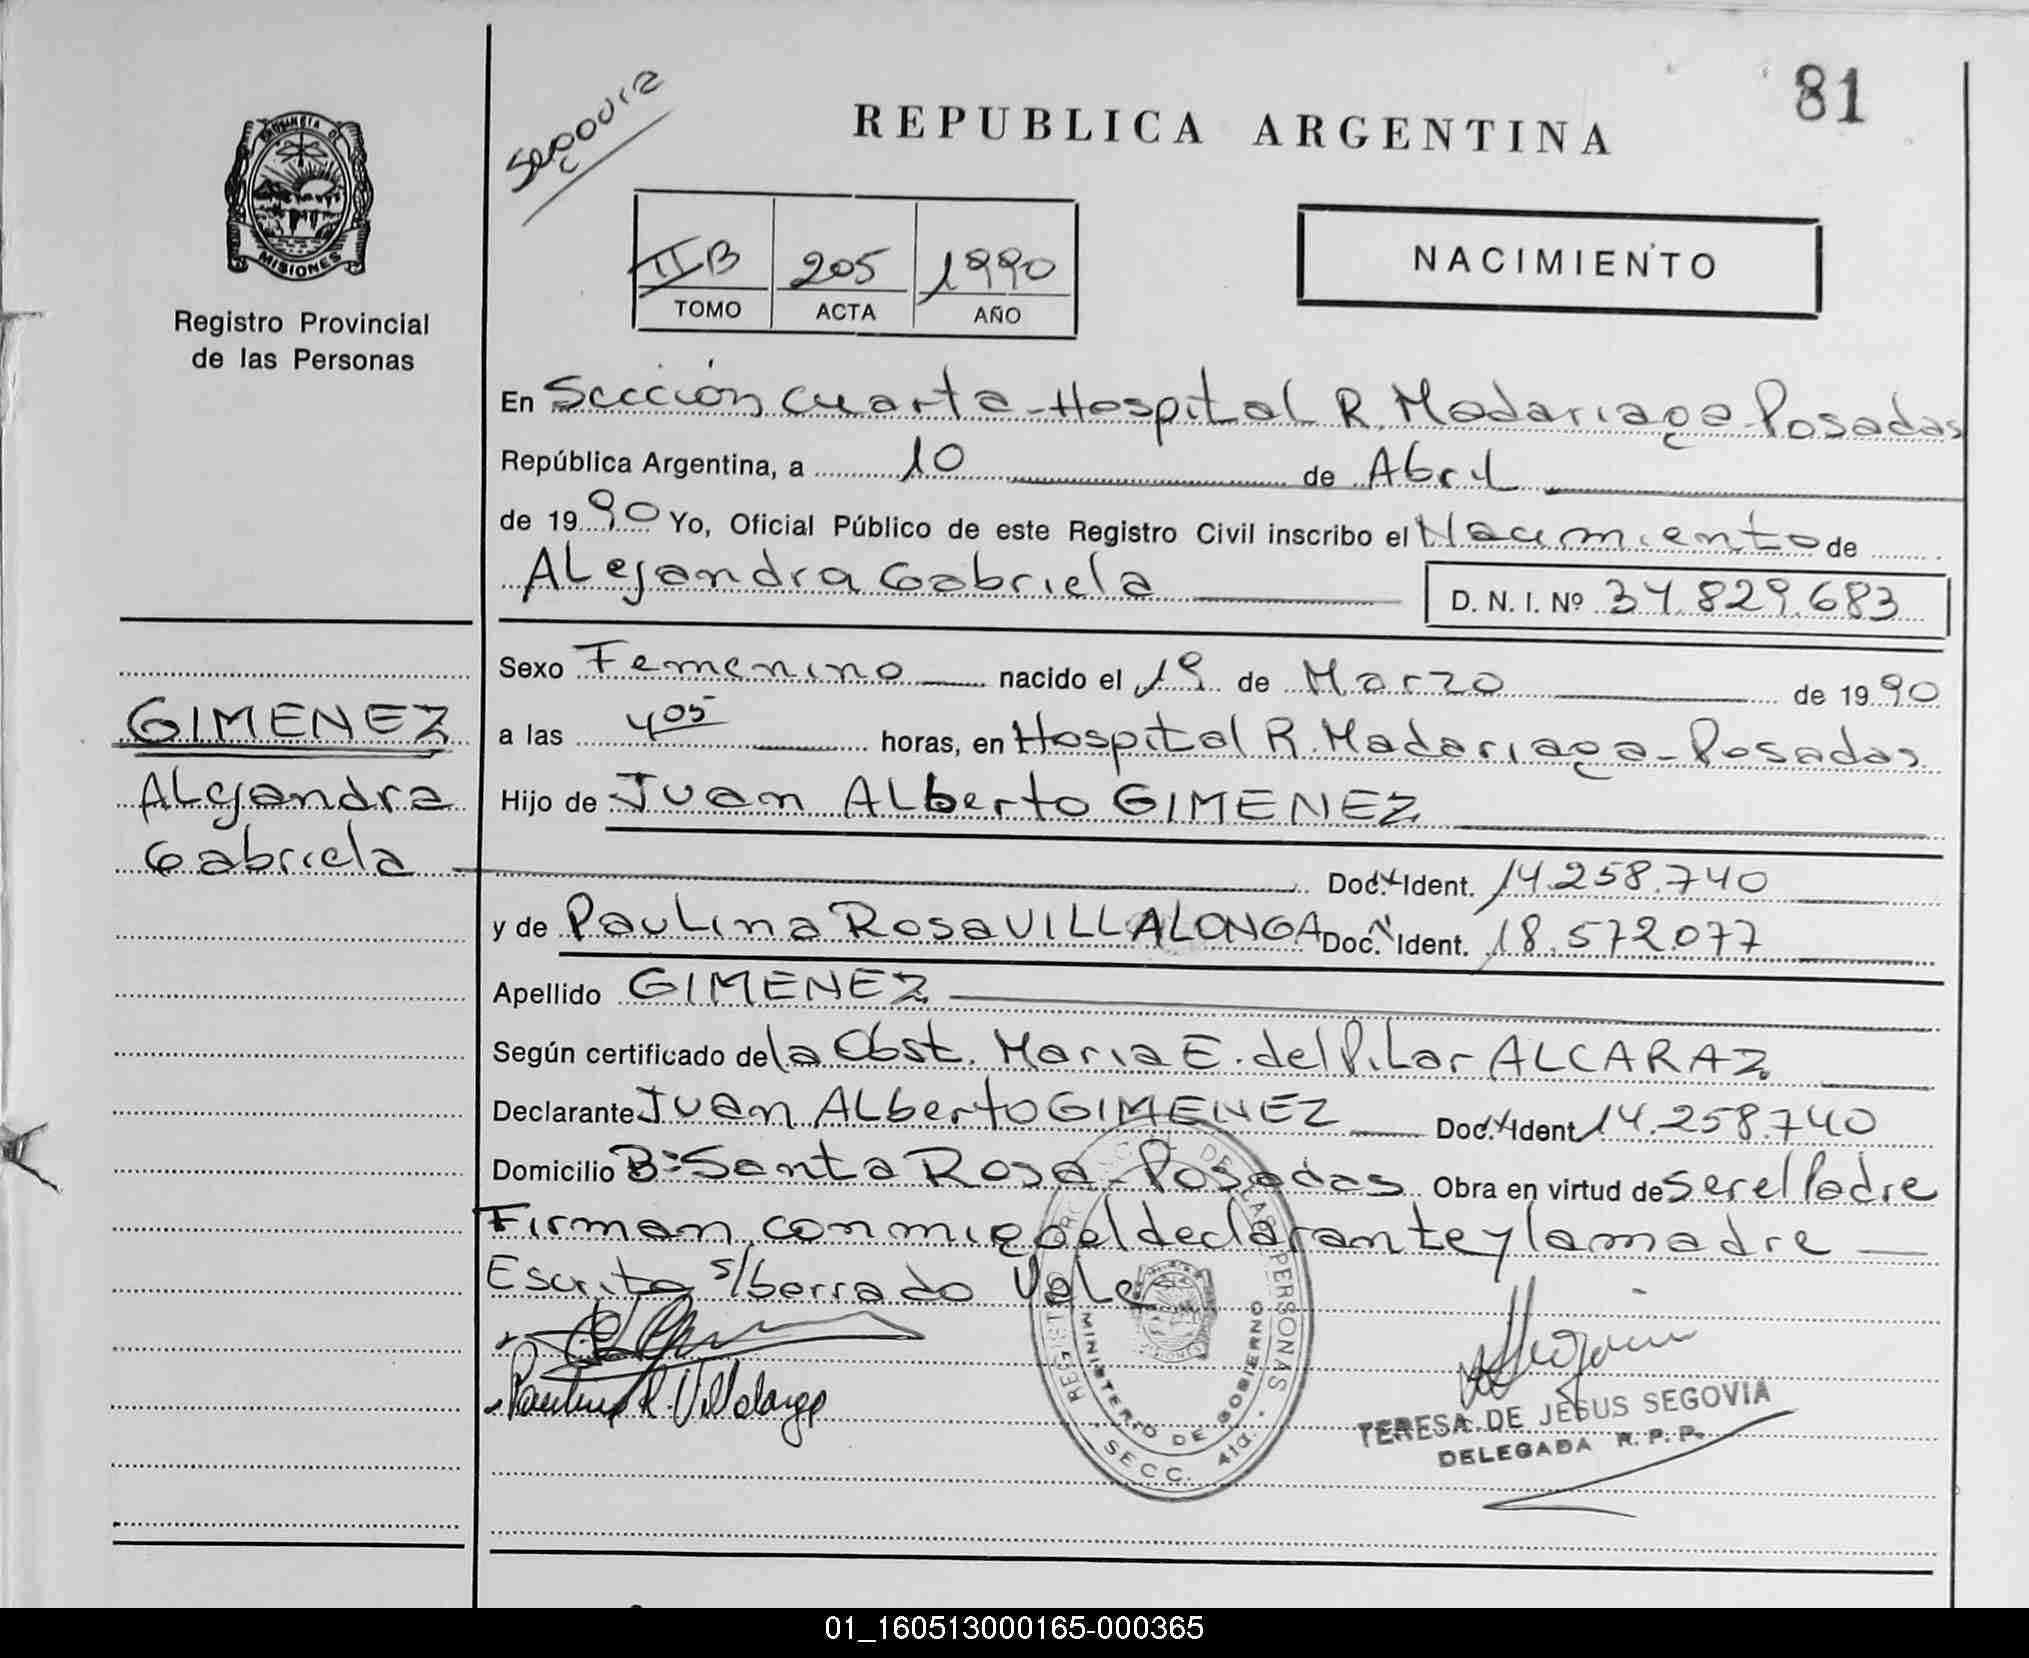 81
Segovia
REPUBLICA ARGENTINA
PROVINCIA DE
MISIONES
Registro Provincial
de las Personas
II B 205 1990
TOMO ACTA AÑO
NACIMIENTO
En Sección Cuarta - Hospital R. Madariaga - Posadas
República Argentina, a 10 de Abril
de 1990 Yo, Oficial Público de este Registro Civil inscribo el Nacimiento de
Alejandra Gabriela
D. N. I. Nº 34.829.683
GIMENEZ
Alejandra
Gabriela
Sexo Femenino nacido el 19 de Marzo de 1990
a las 4 05 horas, en Hospital R. Madariaga - Posadas
Hijo de Juan Alberto GIMENEZ
Doc. Ident. 14.258.740
y de Paulina Rosa VILLALONGA Doc. Ident. 18.572.077
Apellido GIMENEZ
Según certificado de la Obst. Maria E. del Pilar ALCARAZ
Declarante Juan Alberto GIMENEZ Doc. Ident 14.258.740
Domicilio Bº Santa Rosa - Posadas Obra en virtud de ser el Padre
Firman conmigo el declarante y la madre
Escrito s/borrado Vale
Paulina R. Villalonga
REGISTRO PROVINCIAL DE LAS PERSONAS
MINISTERIO DE GOBIERNO
SECC. 4ta.
TERESA DE JESUS SEGOVIA
DELEGADA R. P. P.
01_160513000165-000365